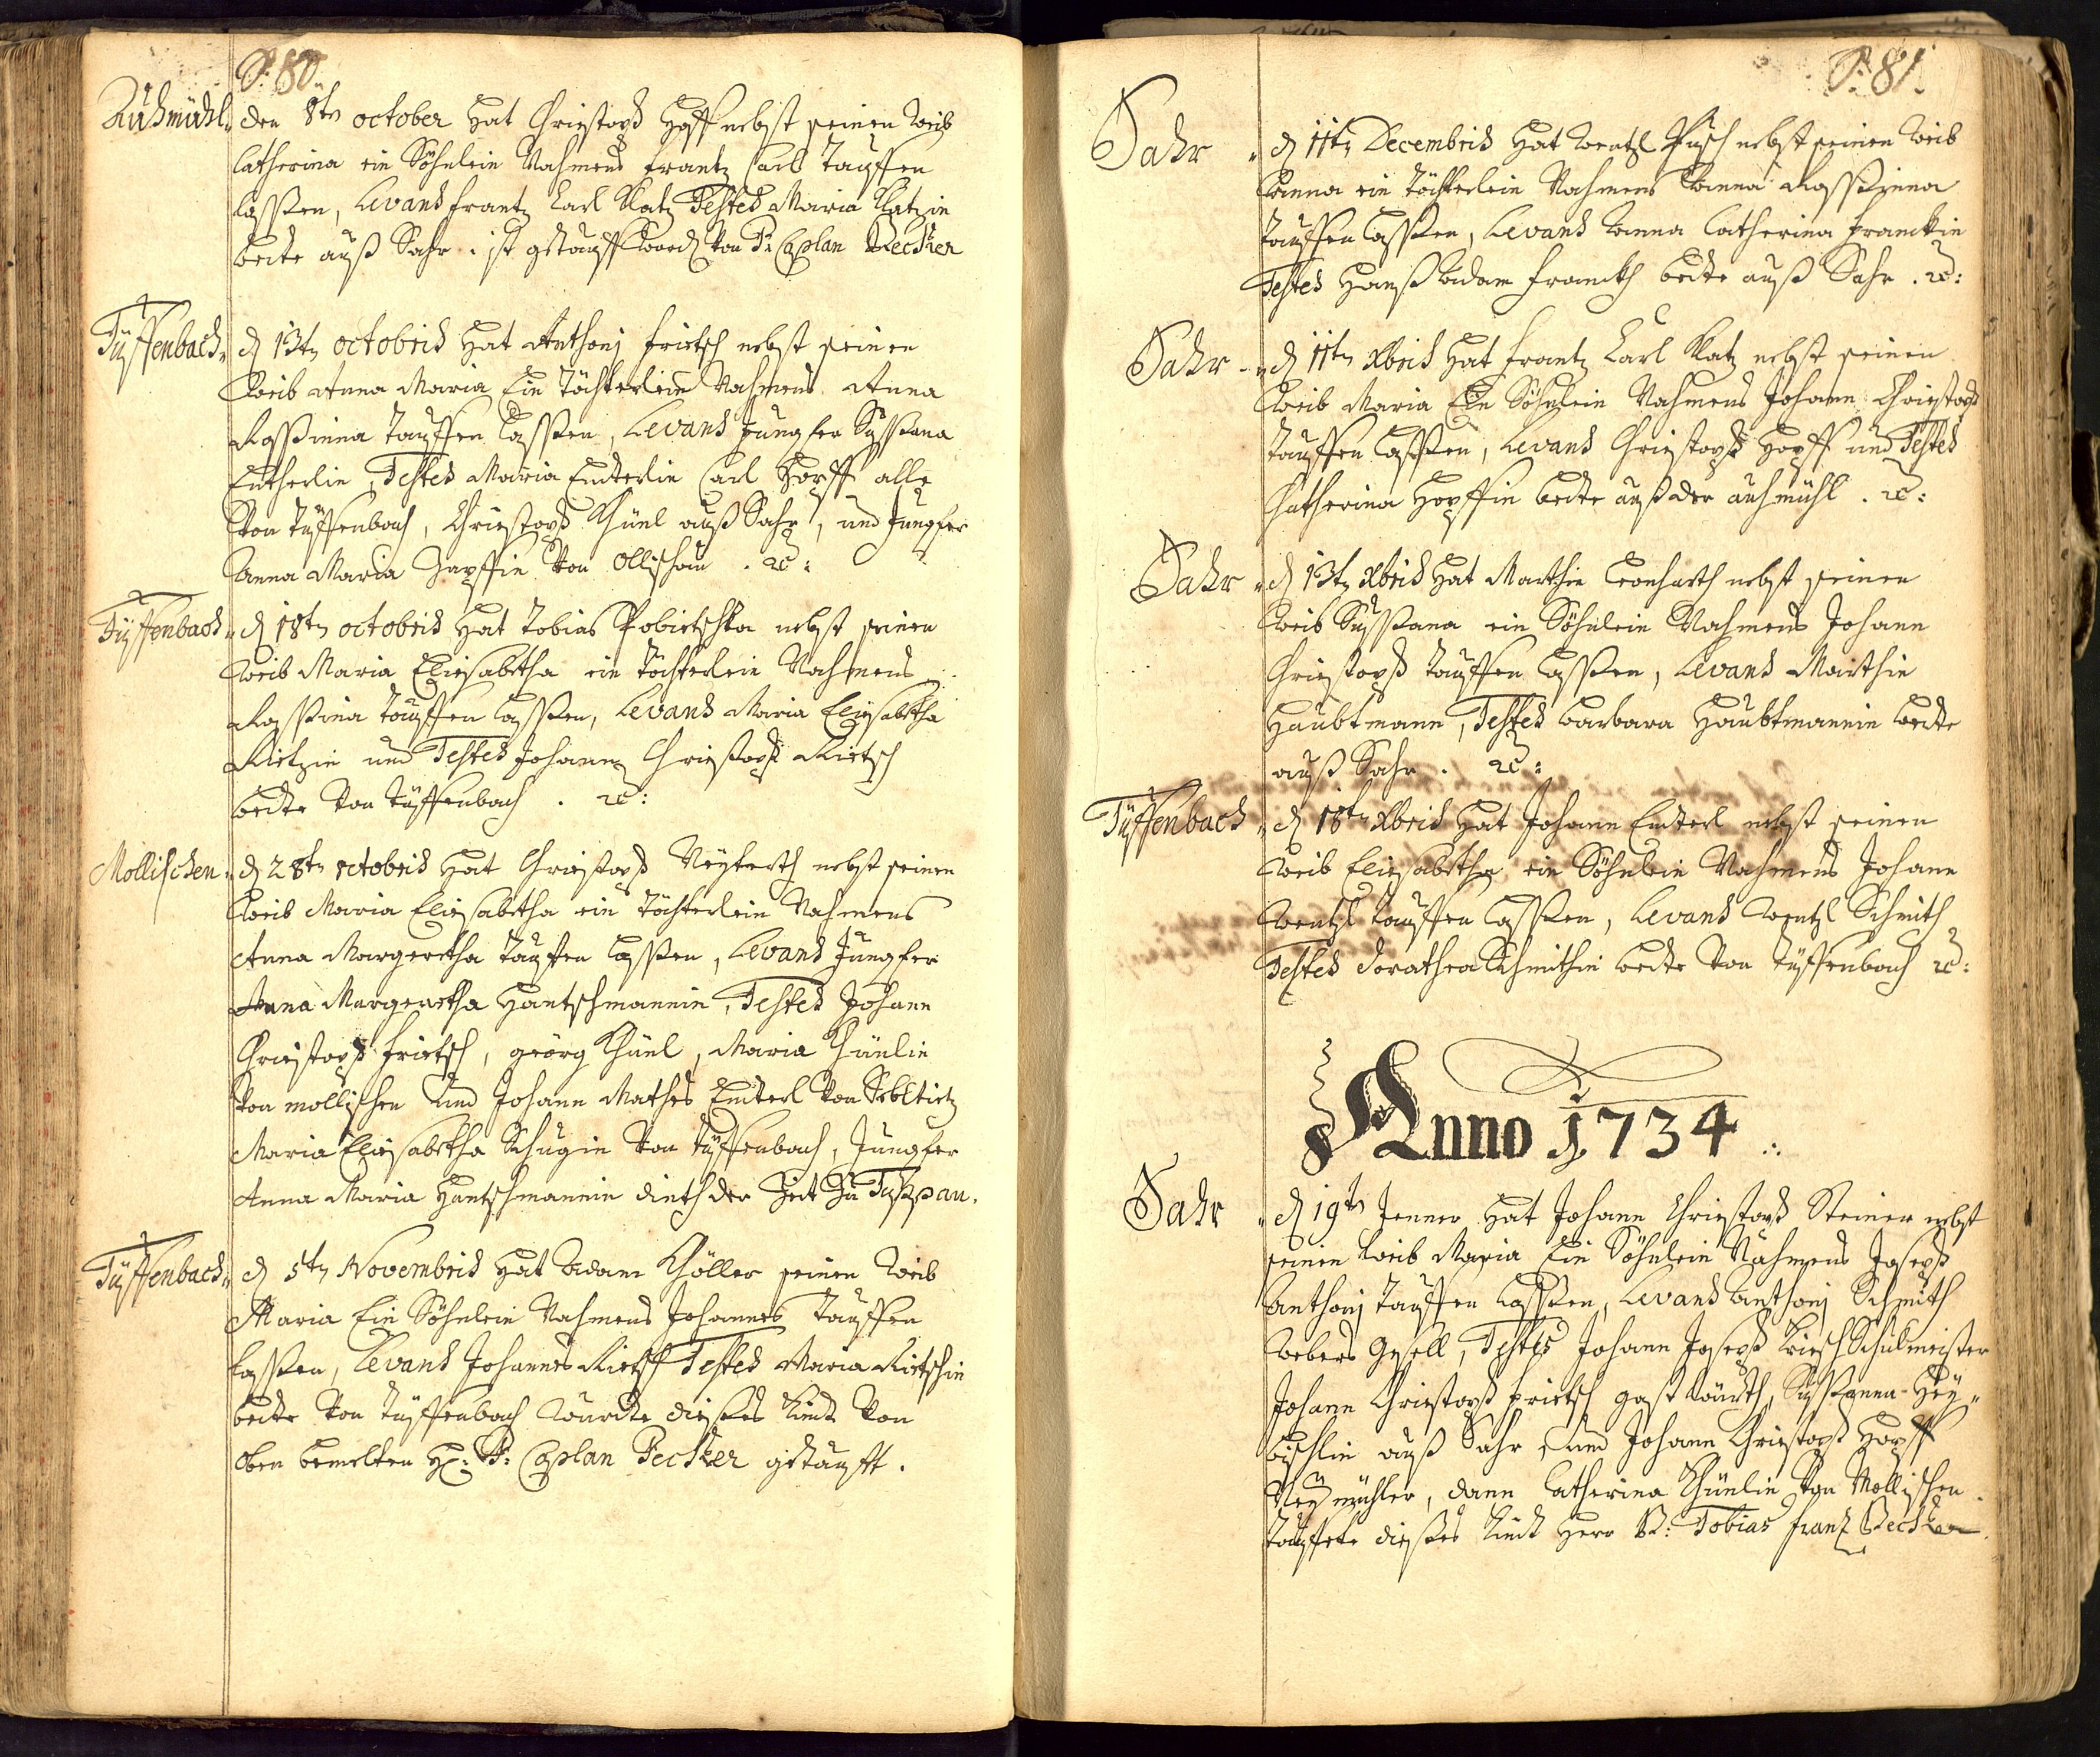 P: 80.
Auhmühl. den 8tn october Hat Christoph Hopff nebst seinen Weib
Catherina ein Söhnlein Nahmens Frantz Carl Tauffen
lassen, Levans Frantz Carl Klatz Testes Maria Klatzin
beite auß Sahr. ist getaufft word von Caplan Becker
Tüffenbach. d 13tn octobris Hat Anthonj Frietsch nebst seinen
Weib Anna Maria Ein Töchterlein Nahmens Anna
Rossinna Tauffen Lassen, Levans Jungfer Sussana
Enderlin, Testes Maria Enderlin Carl Hopff alle
Von Tüffenbach, Christoph Chünl auß Sahr, und Jungfer
Anna Maria Zapffin Von Ollischau. ec:
Tüffenbach. d 18tn octobris Hat Tobias Pobietschka nebst seinen
Weib Maria Eliesabetha ein Töchterlein Nahmens
Rossina Tauffen Lassen, Levans Maria Eliesabetha
Rietzin und Testes Johann Christoph Rietsch
beite Von Tüffenbach. ec:
Mollischen. d 28tn octobris Hat Christoph Neyterth nebst seinen
Weib Maria Eliesabetha ein Töchterlein Nahmens
Anna Margeretha Tauffen Lassen, Levans Jungfer
Anna Margeretha Hantschmannin, Testes Johann
Christoph Frietsch, georg Chünl, Maria Chünlin
Von Mollischen Und Johann Mathes Enderl Von
Maria Eliesabetha Schugin Von Tüffenbach, Jungfer
Anna Maria Hantschmannin dieth der Zeit Zu
Tüffenbach. d 5tn Novembris Hat Adam Chöller seinen Weib
Maria Ein Söhnlein Nahmens Johannes Tauffen
Lassen, Levans Johannes Rietsch Testes Maria Rietschin
beite Von Tüffenbach Wurdte dießes Kindt Von
oben bemelten H: P: Caplan Becker getaufft.
P: 81.
Sahr. d 11tn Decembris Hat Wentzl Pusch nebst seinen Weib
Anna ein Töchterlein Nahmens Anna Rossinna
Tauffen Lassen, Levans Anna Catherina Franckin
Testes Hanß Adam Franckh beite auß Sahr. ec:
Sahr. d 11tn Xbris Hat Frantz Carl Klatz nebst seinen
Weib Maria Ein Söhnlein Nahmens Johann Christoph
Tauffen Lassen, Levans Christoph Hopff und Testes
Chatherina Hopffin beite auß der auhmühl. ec:
Sahr. d 13tn Xbris Hat Marthin Leonharth nebst seinen
Weib Sussana ein Söhnlein Nahmens Johann
Christoph Tauffen Lassen, Levans Marthin
Haubtmann, Testes Barbara Haubtmannin beite
auß Sahr. ec:
Tüffenbach. d 18tn Xbris Hat Johann Enterl nebst seinen
Weib Eliesabetha ein Söhnlein Nahmens Johann
Wentzl Tauffen Lassen, Levans Wentzl Schmith
Testes Dorathea Schmithin beite Von Tüffenbach ec:
Anno 1734
Sahr. d 19tn Jenner Hat Johann Christoph Steiner nebst
seinen Weib Maria Ein Söhnlein Nahmens Joseph
Anthonj Tauffen Lassen, Levans Anthonj Schmith
Webers Gesell, Testes Johann Joseph Kirsch Schulmeister
Johann Christoph Frietsch gast Würth, Sussanna Hey-
bischlin auß Sahr, Und Johann Christoph Hopff
Neymühler, dann Catherina Chünlin Von Mollischen.
Tauffete dießes Kindt Herr P: Tobias Frantz Becker